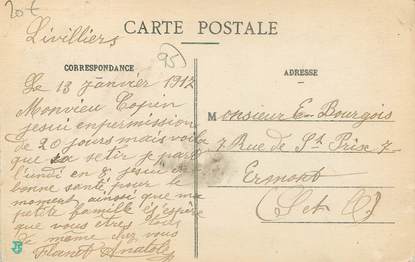 20€
Livilliers
CARTE POSTALE
95
CORRESPONDANCE
Le 13 janvier 1917
Monvieu Copin
jesui enpermission
de 20 jours mais voila
que sa setir je par
l'undi en 8 jesui en
bonne santé pour le
moment ainsi que ma
petite famille et s'espère
que vous etres tous
de même chez vous
Anatole
ADRESSE
Monsieur E. Bourgois
7 Rue de St Prix 7
Ermont
(S et O)